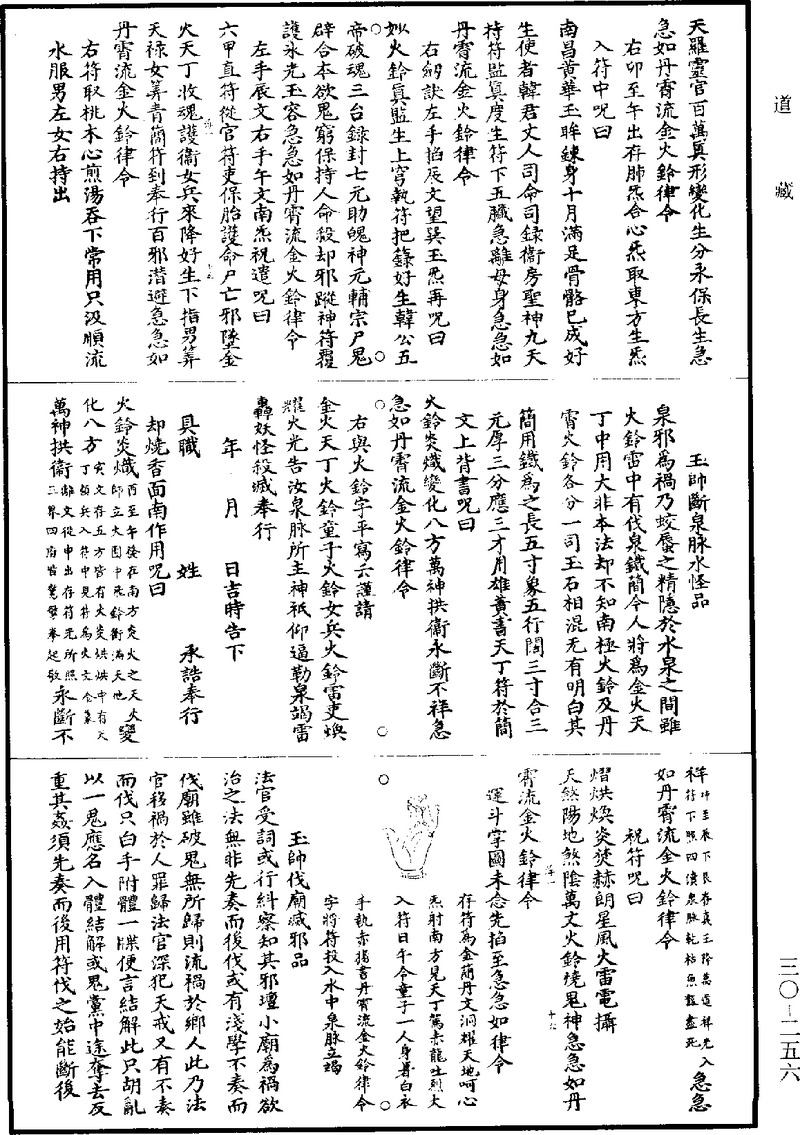 道藏
天羅靈官百萬真形變化生分永保長生急
急如丹霄流金火鈴律令
右卯至午出存肺炁合心炁取東方生炁
入符中呪曰
南昌黃華玉眸鍊身十月滿足骨骼已成好
生使者韓君丈人司命司錄衛房聖神九天
持符監真度生符下五臟急離母身急急如
丹霄流金火鈴律令
右劒訣左手掐辰文望巽玉炁再呪曰
妙火鈴真監生上穹執符把籙好生韓公五
帝破魂三台錄封七元助魄神元輔宗尸鬼
辟合本欲鬼窮保持人命殺却邪蹤神符覆
護永光玉容急急如丹霄流金火鈴律令
左手辰文右手午文南炁祝遣呪曰
六甲直符從官符吏保胎護命尸亡邪墮金
火天丁收魂護衛女兵來降好生下指男筭
天祿女筭青簡符到奉行百邪潛避急急如
丹霄流金火鈴律令
右符取桃木心煎湯吞下常用只汲順流
水服男左女右持出
玉帥斷泉脉水怪品
泉邪為禍乃蛟蜃之精隱於水泉之間雖
火鈴雷中有伐泉鐵簡令人將為金火天
丁中用大非本法却不知南極火鈴及丹
霄火鈴各分一司玉石相混无有明白其
簡用鐵為之長五寸象五行闊三寸合三
元厚三分應三才用雄黃書天丁符於簡
文上背書呪曰
火鈴炎熾變化八方萬神拱衛永斷不祥急
急如丹霄流金火鈴律令
右與火鈴字平寫云謹請
金火天丁火鈴童子火鈴女兵火鈴雷吏煥
耀火光告汝泉脉所主神祇仰逼勒泉竭雷
轟妖怪殺滅奉行
年 月 日吉時告下
具職 姓 承誥奉行
却燒香面南作用呪曰
火鈴炎熾酉至午後在南方炎火之天火師立火團中朱鈴衝滿天地變
化八方寅文存五方皆有火炎烘烘中有天丁領兵入符中見符為火文金篆
萬神拱衛離文從申出存符光所照三界四府皆驚號拳起敬永斷不
祥中至辰下艮存真王降萬道祥光入符下照四瀆泉脉乾枯魚龍盡死急急
如丹霄流金火鈴律令
祝符呪曰
熠烘煥炎焚赫朗星風火雷電攝
天煞陽地煞陰萬丈火鈴燒鬼神急急如丹
霄流金火鈴律令
運斗掌圖未念先掐至急急如律令
存符為金簡丹文洞耀天地呵心
炁射南方見天丁駕赤龍吐烈火
入符日午令童子一人身著白衣
手執赤搭書丹霄流金火鈴律令
字將符投入水中泉脉立竭
玉帥伐廟滅邪品
法官受詞或行糾察知其邪壇小廟為禍欲
治之法無非先奏而後伐或有淺學不奏而
伐廟雖破鬼無所歸則流禍於鄉人此乃法
官移禍於人罪歸法官深犯天戒又有不奏
而伐只白手附體一牒便言結解此只胡亂
以一鬼應名入體結解或鬼黨中途奪去反
重其姦須先奏而後用符伐之始能斷後
三〇-二五六